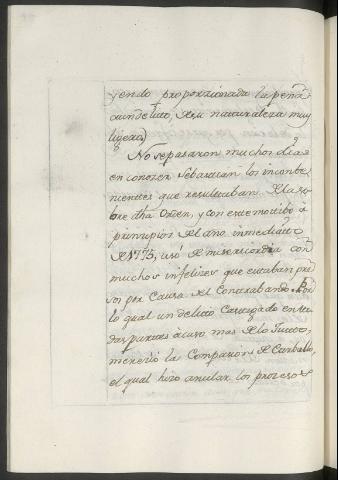 yendo proporzionada la pena
aun delito, de su naturaleza muy
ligero.
No se pasaron muchos dias
en conozer Sebastian los inconbe-
nientes que resultaban de la so-
bre dha Orden, y con este motibo á
prinzipios del año inmediato
de 1775, usó de misericordia con
muchos infelizes que estaban pre
sos por Causa del Contrabando. Por
lo qual un delito Castigado en to
das partes acaso mas de lo Justo,
merezió la Compasion de Carballo,
el qual hizo anular los prozesos